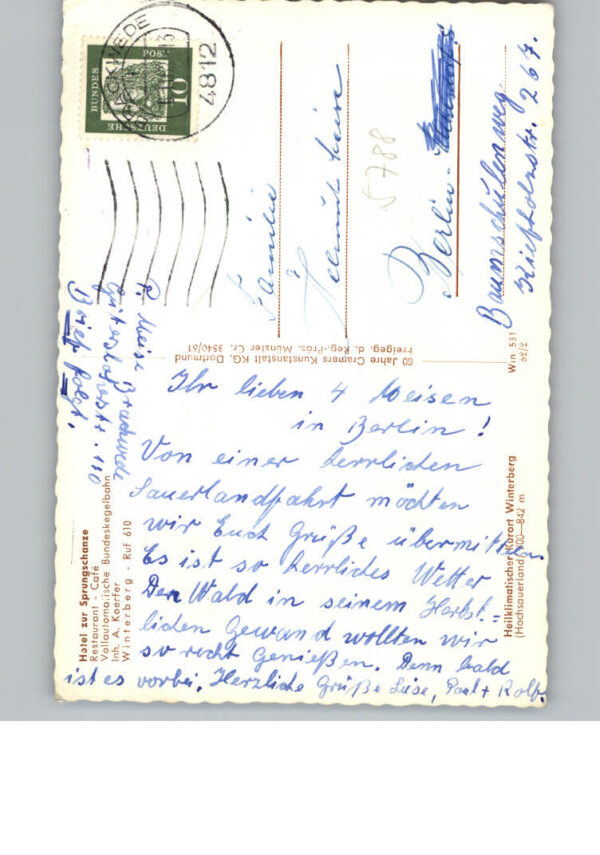 BRACKWEDE
4812
DEUTSCHE
BUNDES
POST
10
Familie
Helmut Meise
5788
Berlin-
Baumschulenweg
Kiefholzstr. 267.
P. Meise Brackwede
Gütersloherstr. 110
Brief folgt.
60 Jahre Cramers Kunstanstalt KG, Dortmund
Freigeg. d. Reg.-Präs. Münster Cr. 3540/61
Win 531
62/2
Ihr lieben 4 Meisen
in Berlin!
Von einer herrlichen
Sauerlandfahrt möchten
wir Euch Grüße übermitteln.
Es ist so herrliches Wetter
Den Wald in seinem Herbst=
lichen Gewand wollten wir
so recht Genießen. Denn bald
ist es vorbei. Herzliche Grüße Luise, Paul + Rolf.
Hotel zur Sprungschanze
Restaurant - Café
Vollautomatische Bundeskegelbahn
Inh. A. Koerfer
Winterberg - Ruf 610
Heilklimatischer Kurort Winterberg
(Hochsauerland) 700—842 m